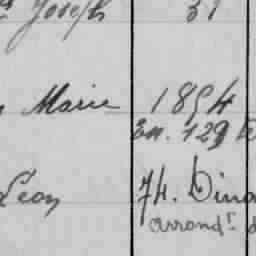 Joseph 31
Marie 1894
En. 129
Léon 74. Dina
arrondt d